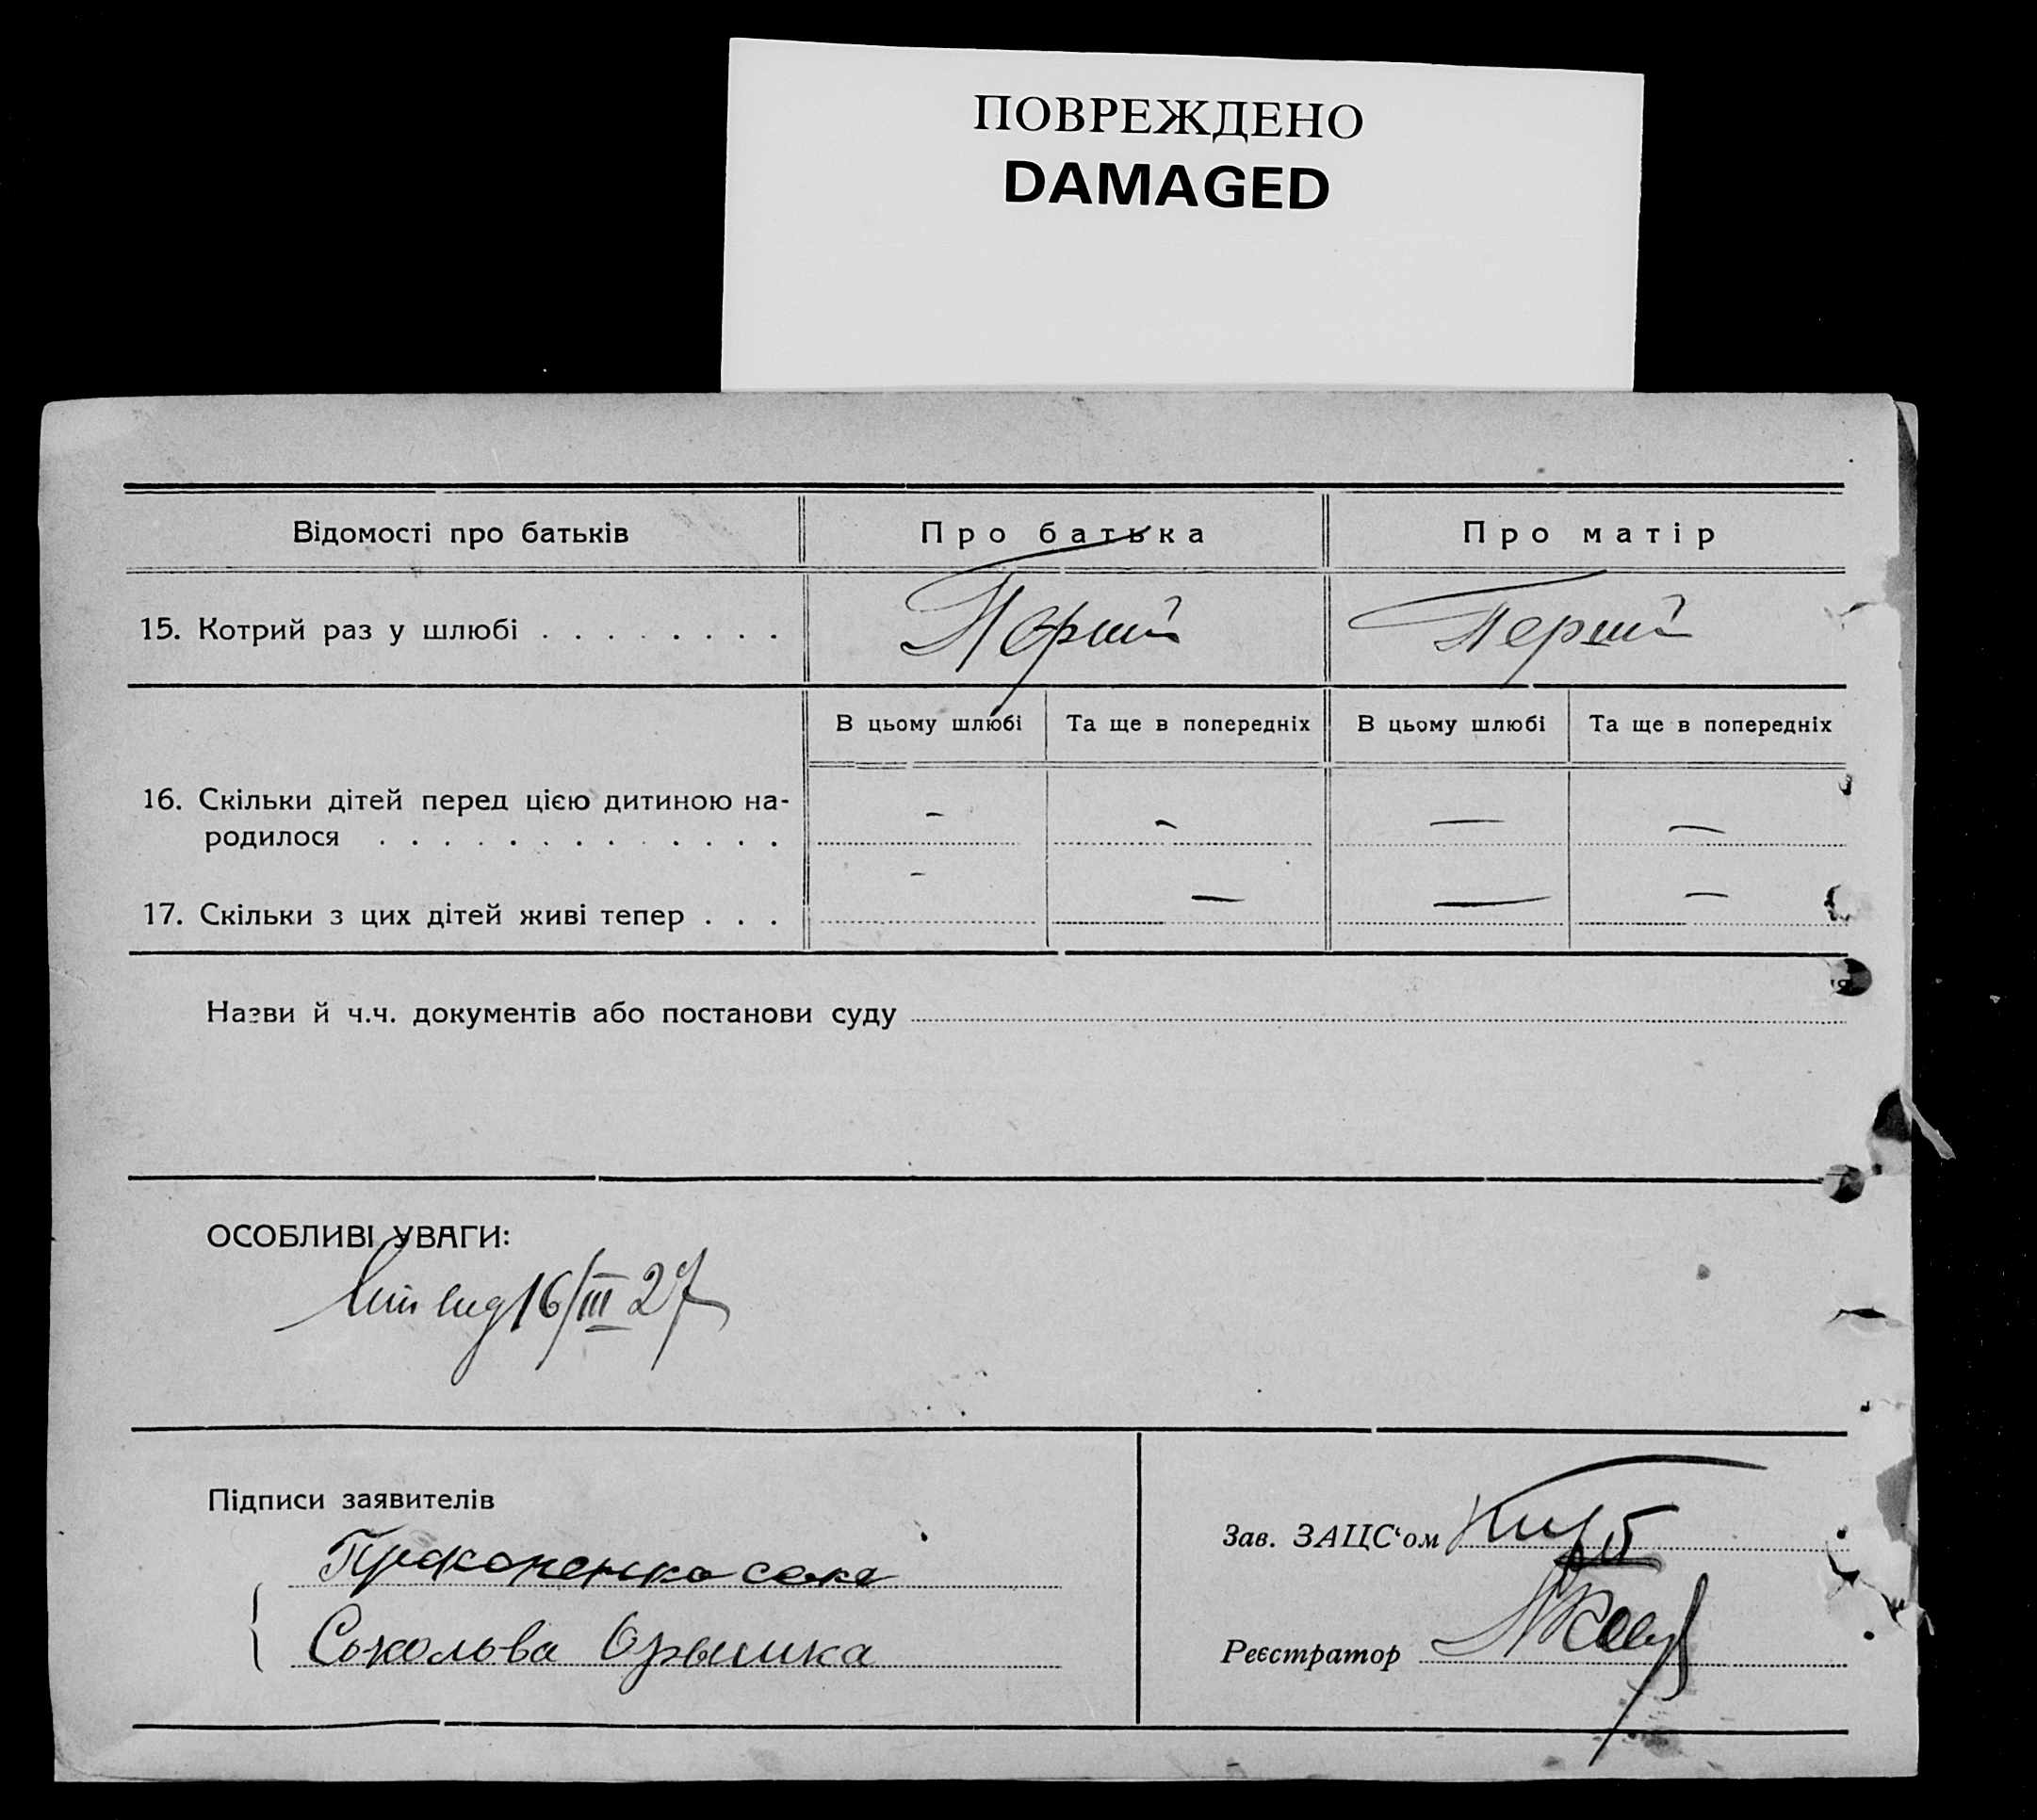 ПОВРЕЖДЕНО
DAMAGED
Відомості про батьків
Про батька
Про матір
15. Котрий раз у шлюбі . . . . . . . .
Перший
Перший
В цьому шлюбі
Та ще в попередніх
В цьому шлюбі
Та ще в попередніх
16. Скільки дітей перед цією дитиною на-
родилося . . . . . . . . . . . . .
— — — —
17. Скільки з цих дітей живі тепер . . .
— — — —
Назви й ч.ч. документів або постанови суду
ОСОБЛИВІ УВАГИ:
16/III 27
Підписи заявителів
Зав. ЗАЦС‘ом
Прокопенко
Сокольва Орышка
Реєстратор